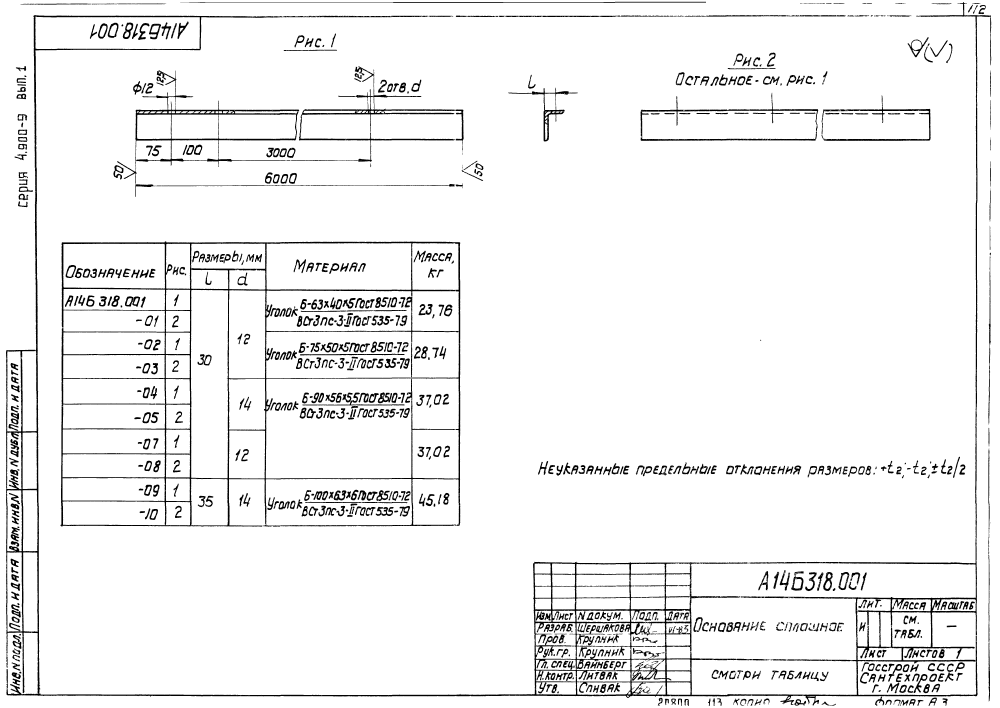 112
А14Б318.001
Серия 4.900-9 вып. 1
Рис. 1
Рис. 2
Остальное - см. рис. 1
ф12
125
125
2отв. d
l
75
100
3000
6000
50
50
Обозначение Рис. Размеры, мм Материал Масса, кг
l d
А14Б 318.001 1 30 12 Уголок Б-63х40х5 Гост 8510-72 23,76
-01 2 ВСт3пс-3-II Гост 535-79
-02 1 Уголок Б-75х50х5 Гост 8510-72 28,74
-03 2 ВСт3пс-3-II Гост 535-79
-04 1 14 Уголок Б-90х56х5,5 Гост 8510-72 37,02
-05 2 ВСт3пс-3-II Гост 535-79
-07 1 12 37,02
-08 2
-09 1 35 14 Уголок Б-100х63х6 Гост 8510-72 45,18
-10 2 ВСт3пс-3-II Гост 535-79
Неуказанные предельные отклонения размеров: +t2; -t2; ±t2/2
Инв. N подл. Подп. и дата Взам. инв. N Инв. N дубл. Подп. и дата
А14Б318.001
Изм. Лист N докум. Подп. Дата
Разраб. Шершакова
Пров. Крупник
Рук.гр. Крупник
Гл. спец. Вайнберг
Н.контр. Литвак
Утв. Спивак
Основание сплошное
Лит. Масса Масштаб
И см. табл. —
Лист Листов 1
смотри таблицу
Госстрой СССР
Сантехпроект
г. Москва
20800 113 Копир
Формат А3